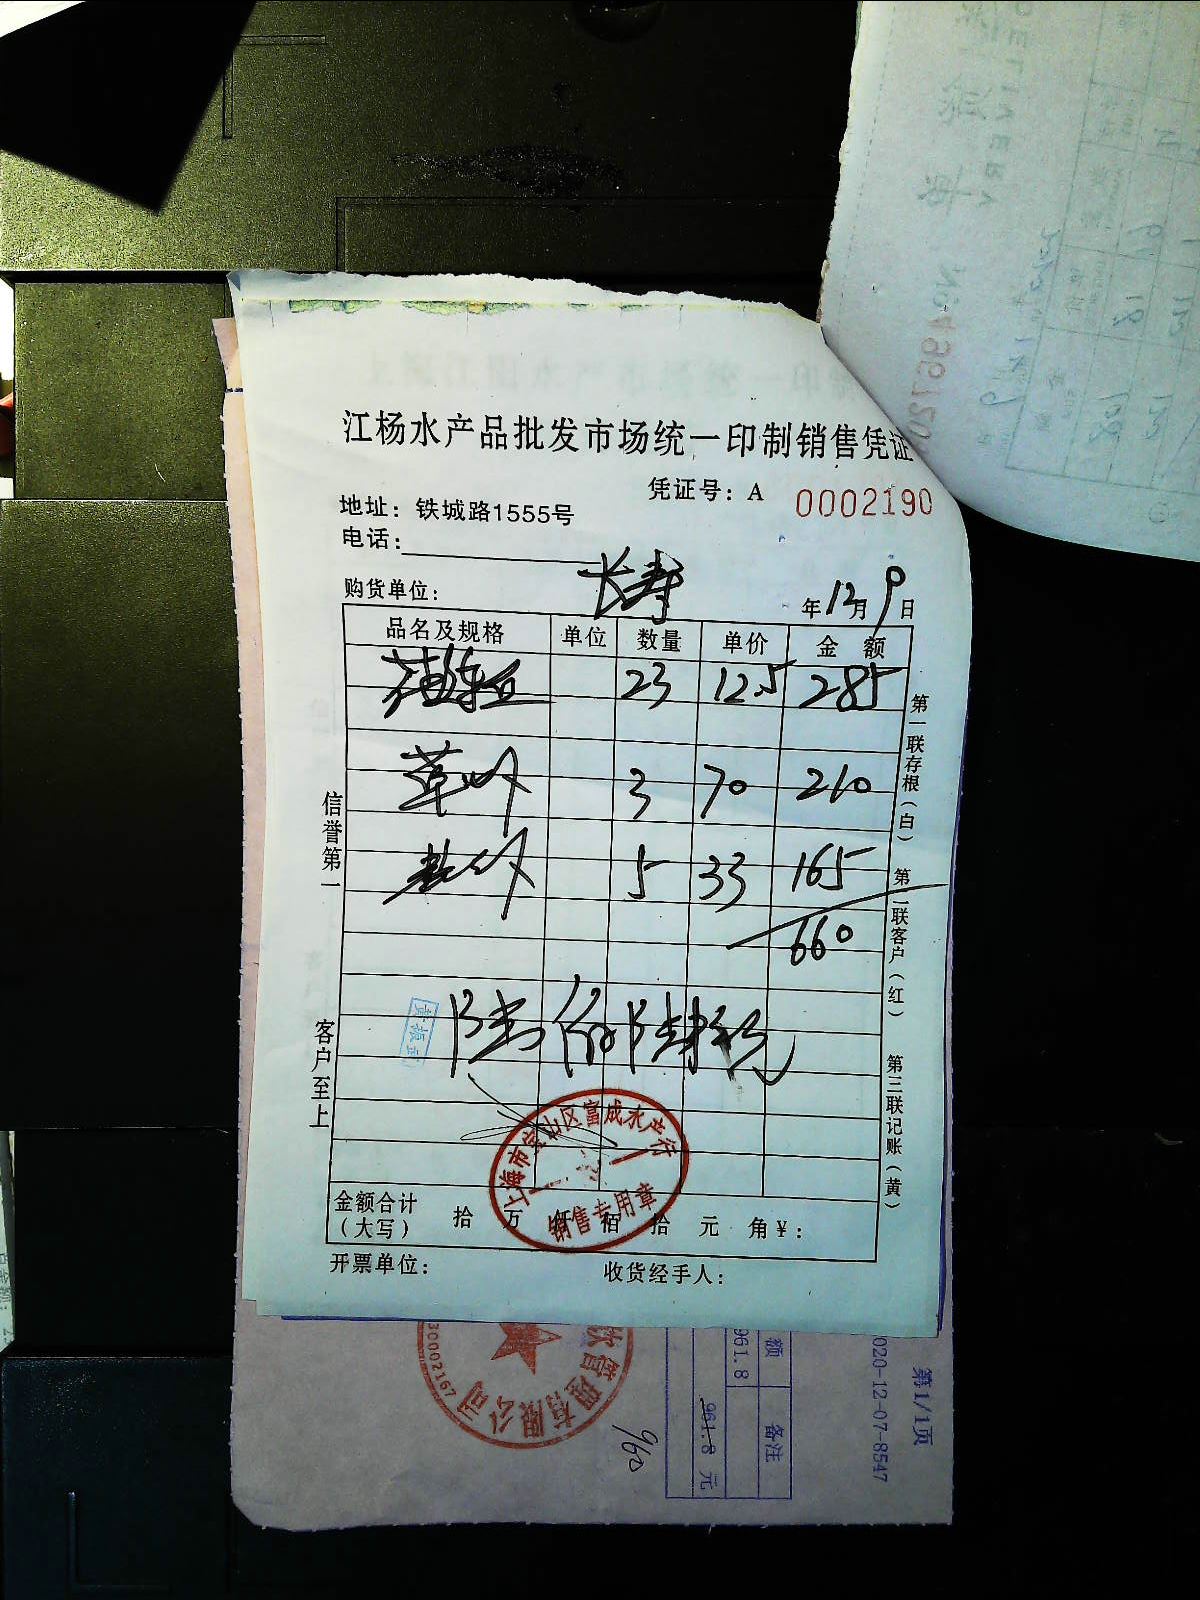 江杨水产品批发市场统一印制销售凭证
凭证号：A 0002190
地址：铁城路1555号
电话：
购货单位： 长寿 年12月9日
品名及规格 单位 数量 单价 金额
23 12.5 285
3 70 210
5 33 165
660
陆佰陆拾元
金额合计（大写） 拾 万 仟 佰 拾 元 角 ¥：
开票单位： 收货经手人：
信誉第一
客户至上
第一联存根（白）
第二联客户（红）
第三联记账（黄）
上海市宝山区富成水产行
销售专用章
管理有限公司
30002167
额 备注
961.8
961.8 元
960
020-12-07-8547
第1/1页
DELIVERY